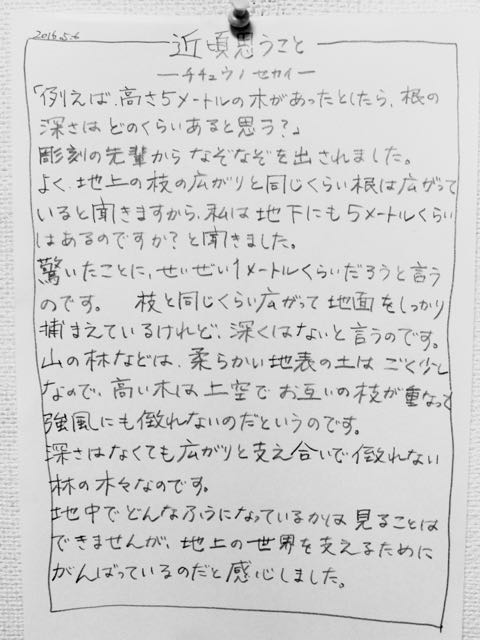 2016.5.6
近頃思うこと
―チチュウノセカイ―
「例えば、高さ5メートルの木があったとしたら、根の
深さはどのくらいあると思う?」
彫刻の先輩からなぞなぞを出されました。
よく、地上の枝の広がりと同じくらい根は広がって
いると聞きますから、私は地下にも5メートルくらい
はあるのですか?と聞きました。
驚いたことに、せいぜい1メートルくらいだろうと言う
のです。 枝と同じくらい広がって地面をしっかり
捕まえているけれど、深くはないと言うのです。
山の林などは、柔らかい地表の土はごく少し
なので、高い木は上空でお互いの枝が重なって
強風にも倒れないのだというのです。
深さはなくても広がりと支え合いで倒れない
林の木々なのです。
地中でどんなふうになっているかは見ることは
できませんが、地上の世界を支えるために
がんばっているのだと感心しました。